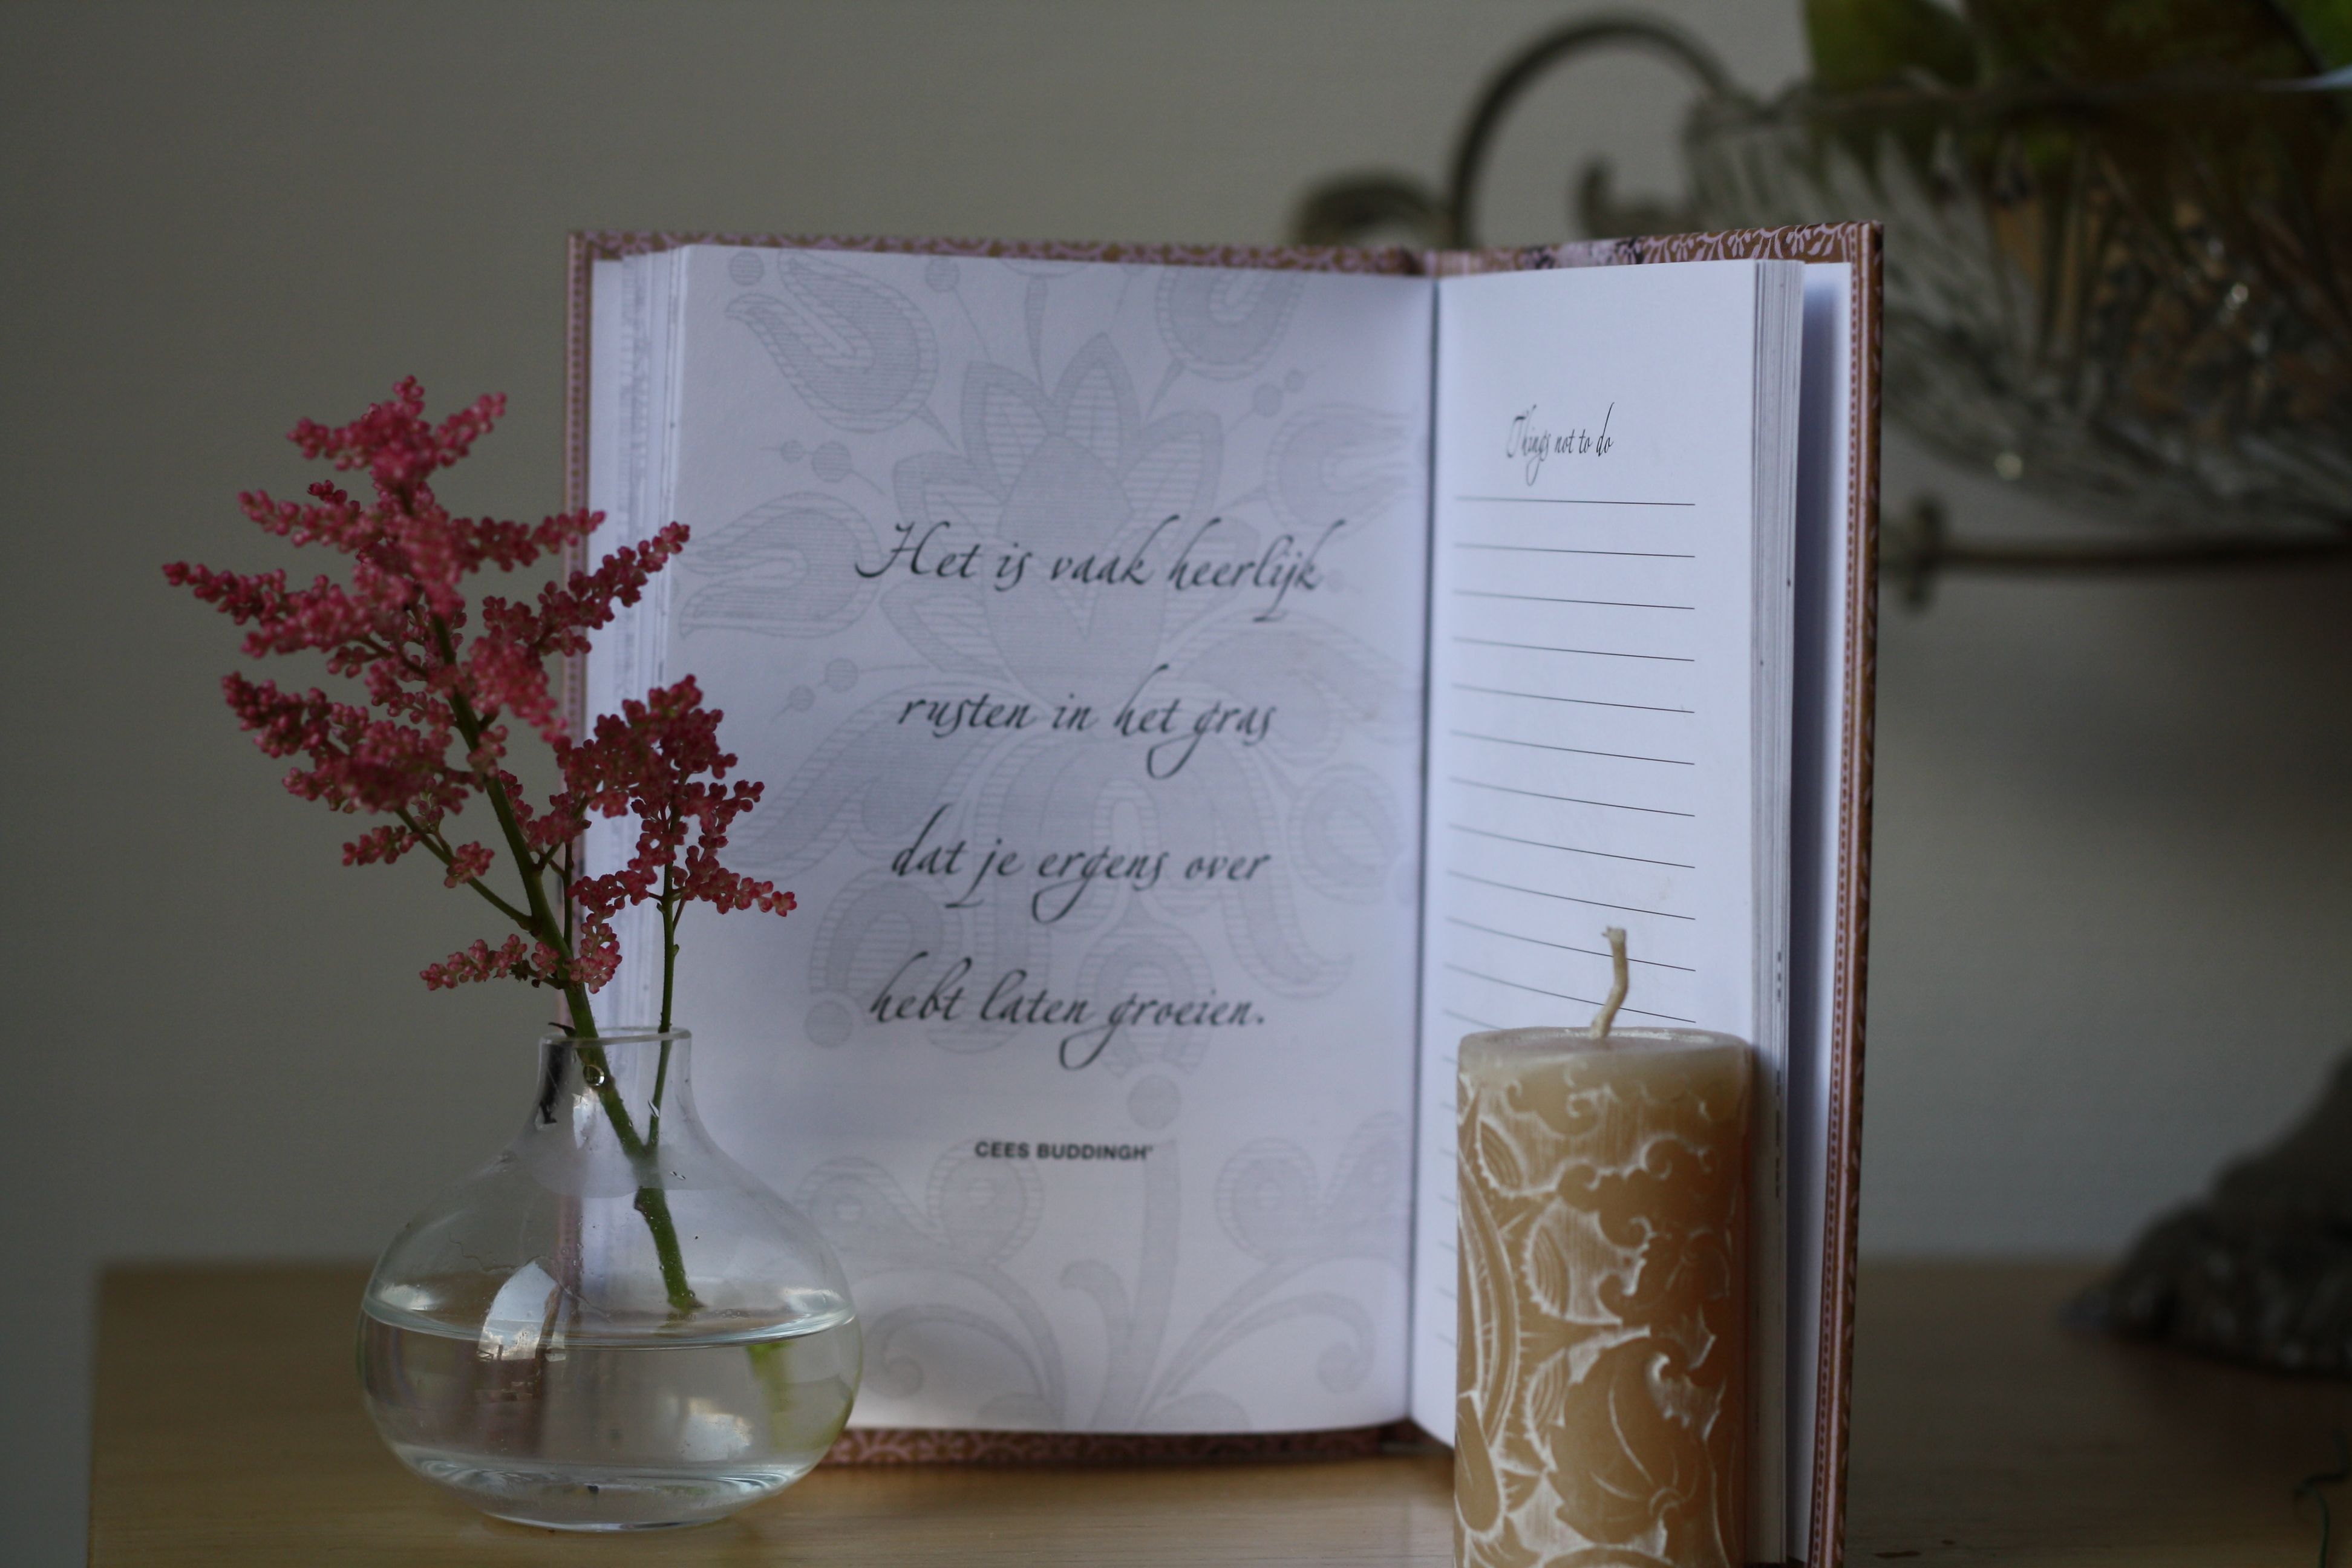 Het is vaak heerlijk
rusten in het gras
dat je ergens over
hebt laten groeien.
CEES BUDDINGH'
Things not to do